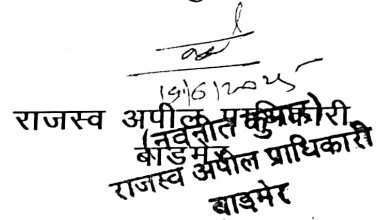 19/6/2025
राजस्व अपील प्राधिकारी
(नवनीत कुमार)
बाड़मेर
राजस्व अपील प्राधिकारी
बाडमेर